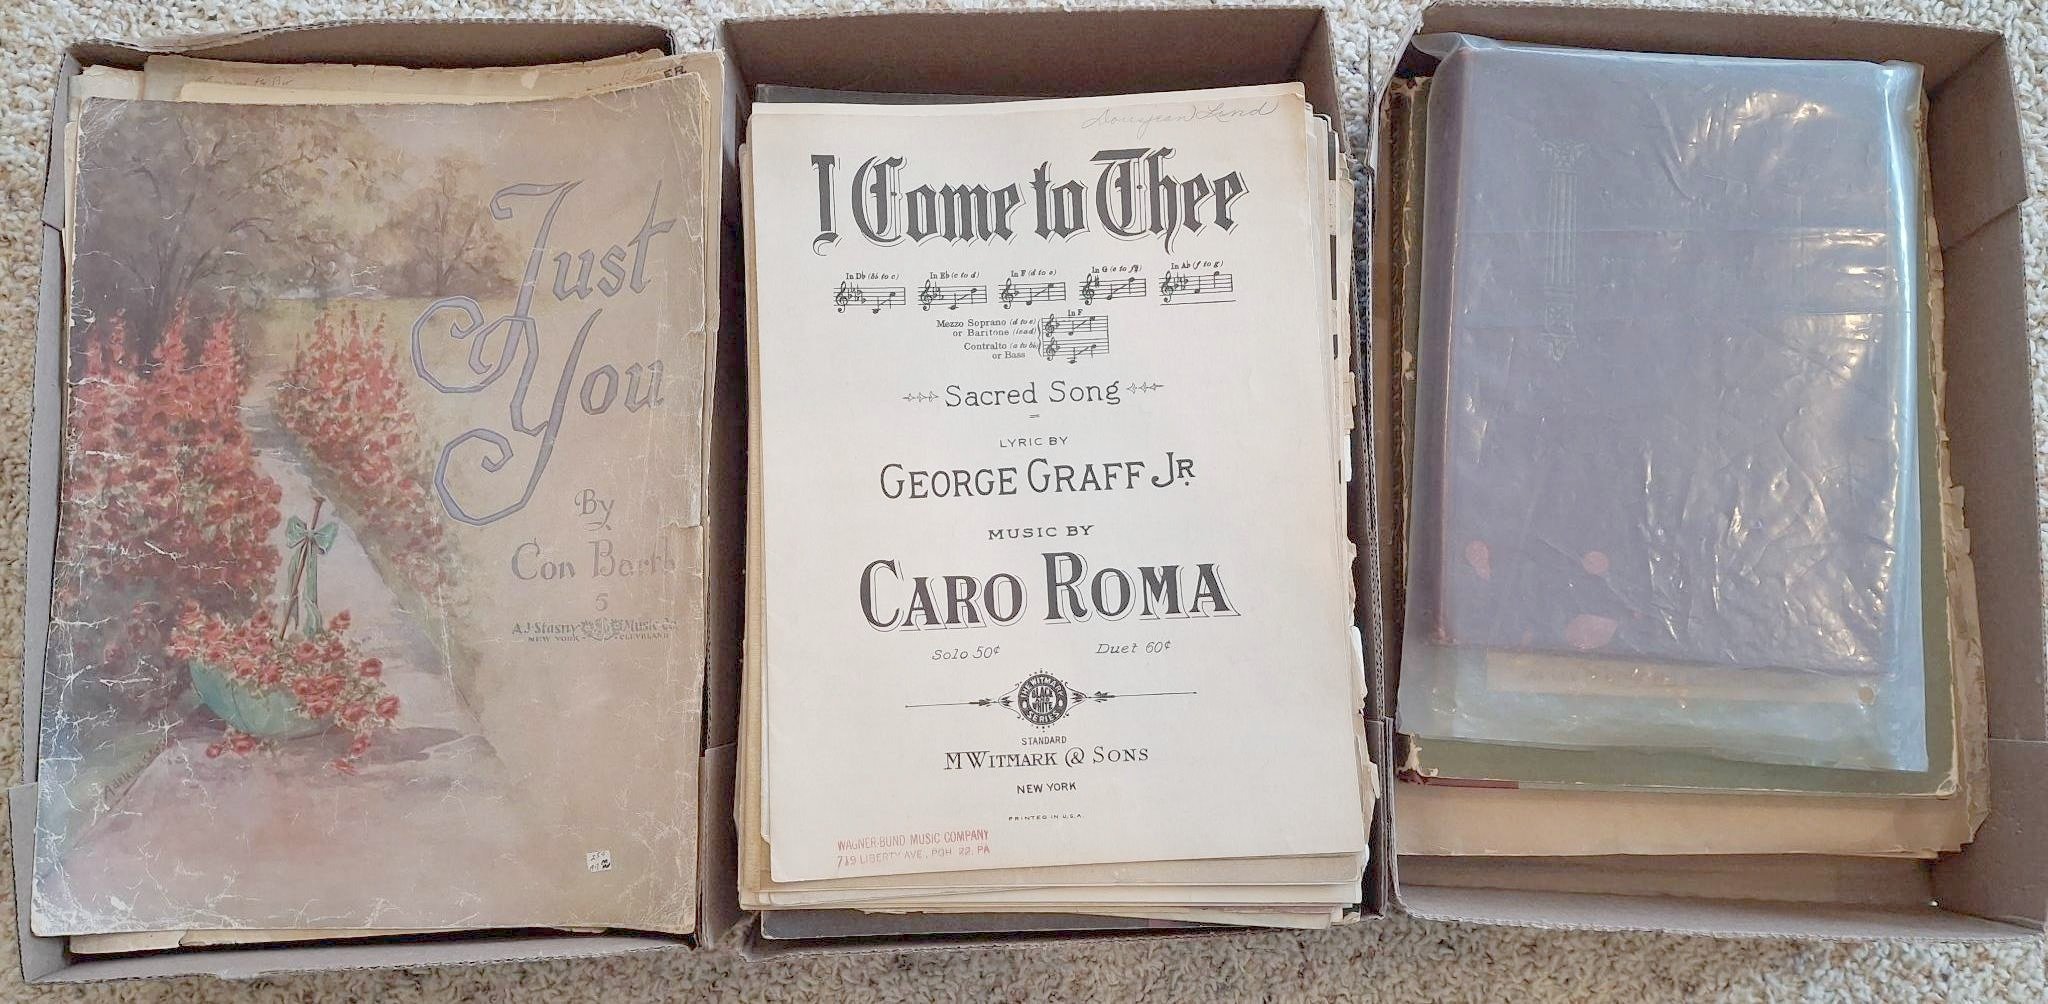 ER
Just
You
By
Con Barth
5
A.J. Stasny Music Co.
NEW YORK CLEVELAND
Lind
I Come to Thee
In Db (bb to c) In Eb (c to d) In F (d to e) In G (e to f#) In Ab (f to g)
In F
Mezzo Soprano (d to e)
or Baritone (lead)
Contralto (a to bb)
or Bass
Sacred Song
LYRIC BY
GEORGE GRAFF JR.
MUSIC BY
CARO ROMA
Solo 50¢ Duet 60¢
THE WITMARK
BLACK
AND
WHITE
SERIES
STANDARD
M WITMARK & SONS
NEW YORK
PRINTED IN U.S.A.
WAGNER-BUND MUSIC COMPANY
719 LIBERTY AVE., PGH 22, PA